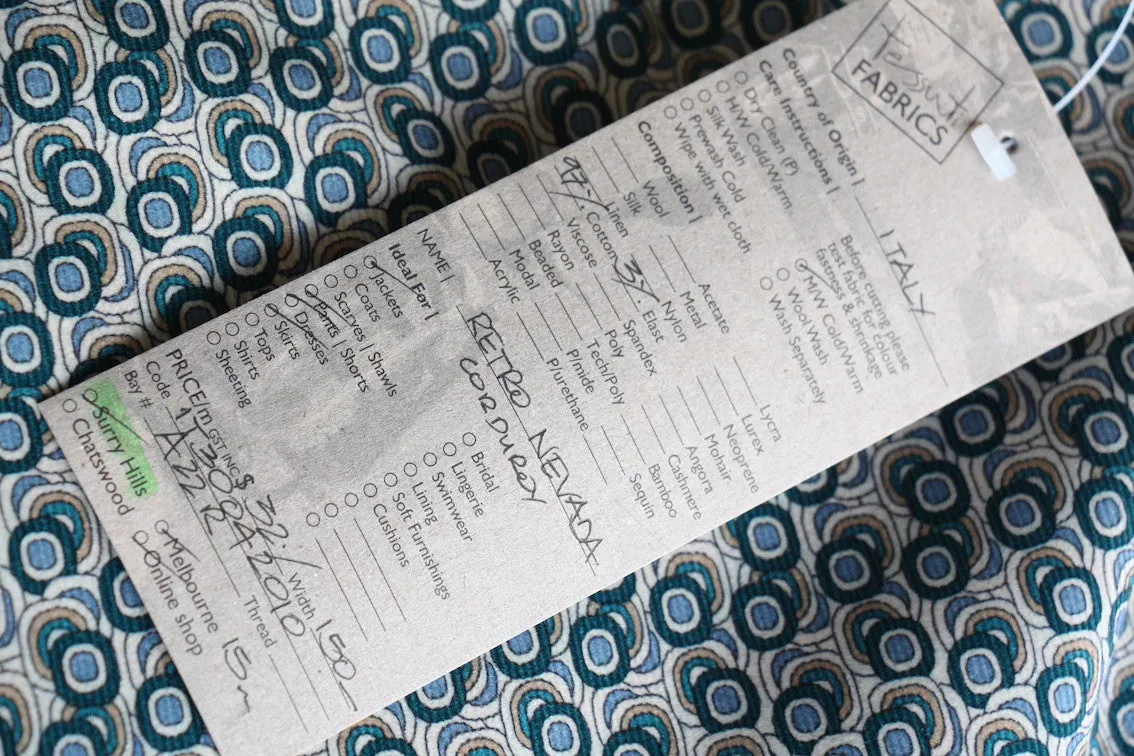 tessuti
FABRICS
Country of Origin | ITALY
Care Instructions |
Dry Clean (P)
H/W Cold/Warm
Silk Wash
Prewash Cold
Wipe with wet cloth
Before cutting please
test fabric for colour
fastness & shrinkage
M/W Cold/Warm
Wool Wash
Wash Separately
Composition |
Wool
Silk
Linen
97% Cotton
Viscose
Rayon
Beaded
Modal
Acrylic
Acetate
Metal
Nylon
3% Elast
Spandex
Poly
Tech/Poly
P/mide
P/urethane
Lycra
Lurex
Neoprene
Mohair
Angora
Cashmere
Bamboo
Sequin
NAME | RETRO NEVADA
CORDUROY
Ideal For |
Jackets
Coats
Scarves | Shawls
Pants | Shorts
Dresses
Skirts
Tops
Shirts
Sheeting
Bridal
Lingerie
Swimwear
Lining
Soft Furnishings
Cushions
PRICE/m GST INC $ 32.- Width 150
Code
Bay # A22R Thread
Surry Hills
Chatswood
Melbourne 15m
Online shop